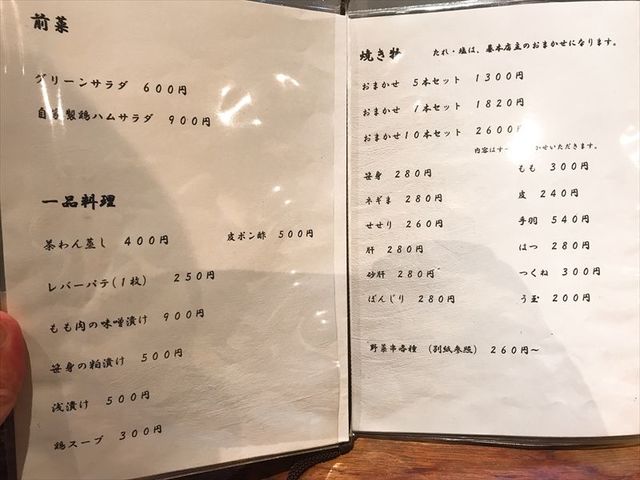 前菜
グリーンサラダ 600円
自家製鶏ハムサラダ 900円
一品料理
茶わん蒸し 400円
皮ポン酢 500円
レバーパテ(1枚) 250円
もも肉の味噌漬け 900円
笹身の粕漬け 500円
浅漬け 500円
鶏スープ 300円
焼き
たれ・塩は、基本店主のおまかせになります。
おまかせ 5本セット 1300円
おまかせ 7本セット 1820円
おまかせ10本セット 2600円
内容はす かせいただきます。
笹身 280円
もも 300円
ネギま 280円
皮 240円
せせり 260円
手羽 540円
肝 280円
はつ 280円
砂肝 280円
つくね 300円
ぼんじり 280円
う玉 200円
野菜串各種 (別紙参照) 260円〜